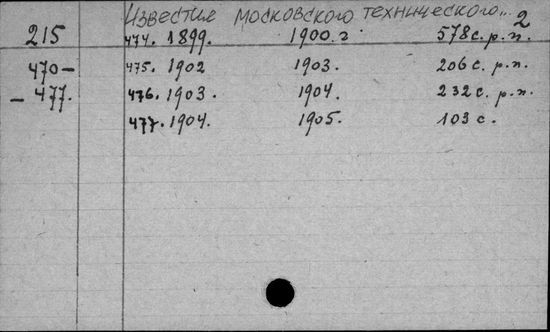 Известия Московского технического... 2
215 474. 1899. 1900.г 578с. р.п.
470- 475. 1902 1903. 206 с. р.п.
-477. 476. 1903. 1904. 232с. р.п.
477. 1904. 1905. 103 с.